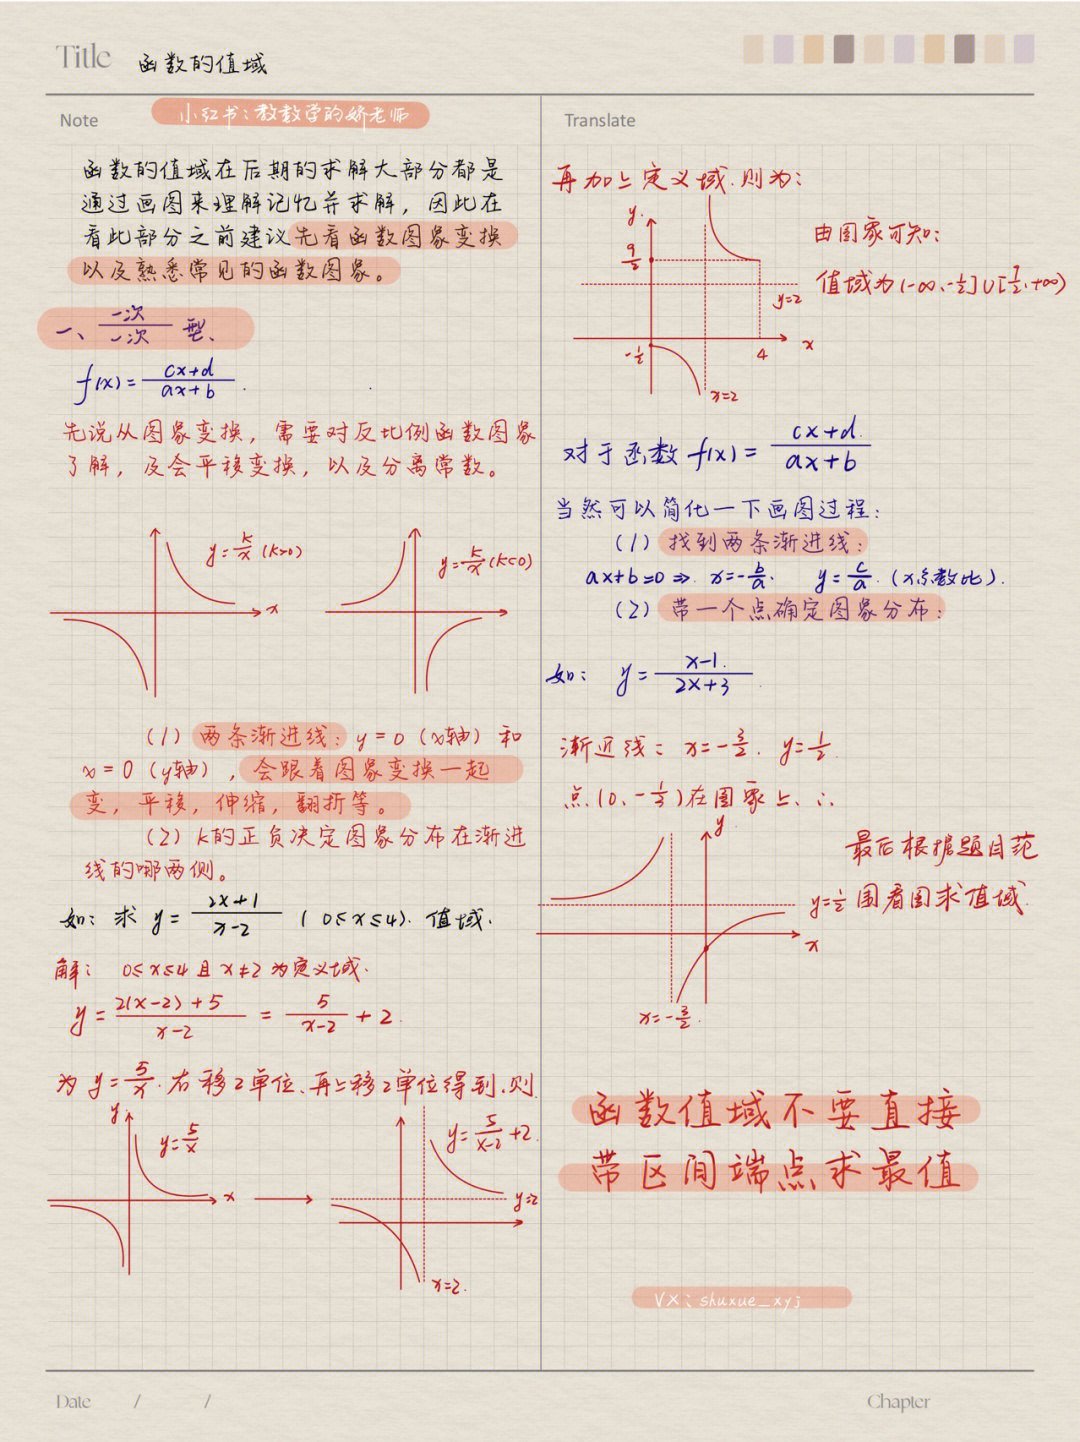 Title 函数的值域
Note
小红书：教数学的娇老师
函数的值域在后期的求解大部分都是
通过画图来理解记忆并求解，因此在
看此部分之前建议先看函数图象变换
以及熟悉常见的函数图象。
一、一次/一次 型、
f(x)= (cx+d)/(ax+b) .
先说从图象变换，需要对反比例函数图象
了解，及会平移变换，以及分离常数。
y=k/x (k>0)
x
y=k/x (k<0)
(1) 两条渐进线：y=0 (x轴) 和
x=0 (y轴)，会跟着图象变换一起
变，平移，伸缩，翻折等。
(2) k的正负决定图象分布在渐进
线的哪两侧。
如：求 y= (2x+1)/(x-2) (0≤x≤4). 值域.
解： 0≤x≤4 且 x≠2 为定义域.
y= (2(x-2)+5)/(x-2) = 5/(x-2) +2.
为 y=5/x. 右移2单位、再上移2单位得到.则
y
y=5/x
x
y=5/(x-2)+2.
y=2
x=2.
Translate
再加上定义域.则为：
y
9/2
y=2
-1/2
4
x
x=2
由图象可知：
值域为(-∞,-1/2]∪[9/2,+∞)
对于函数 f(x)= (cx+d)/(ax+b)
当然可以简化一下画图过程：
(1) 找到两条渐进线：
ax+b=0 ⇒ x=-b/a. y=c/a. (x系数比).
(2) 带一个点确定图象分布：
如： y= (x-1)/(2x+3) .
渐近线： x=-3/2. y=1/2.
点(0,-1/3)在图象上、∴
y
y=1/2
x
x=-3/2.
最后根据题目范
围看图求值域.
函数值域不要直接
带区间端点求最值
VX：shuxue_xyj
Date / /
Chapter